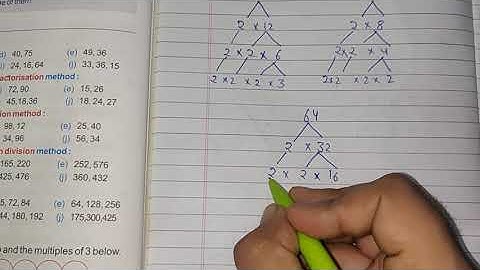 of them?
40, 75 (e) 49, 36
24, 16, 64 (j) 33, 36, 15
actorisation method :
72, 90 (e) 15, 26
45,18,36 (j) 18, 24, 27
ion method :
98, 12 (e) 25, 40
34, 96 (j) 56, 34
n division method :
165, 220 (e) 252, 576
425, 476 (j) 360, 432
5, 72, 84 (e) 64, 128, 256
44, 180, 192 (j) 175,300,425
and the multiples of 3 below.
2 × 12
2 × 2 × 6
2 × 2 × 2 × 3
2 × 8
2 × 2 × 4
2 × 2 × 2 × 2
64
2 × 32
2 × 2 × 16